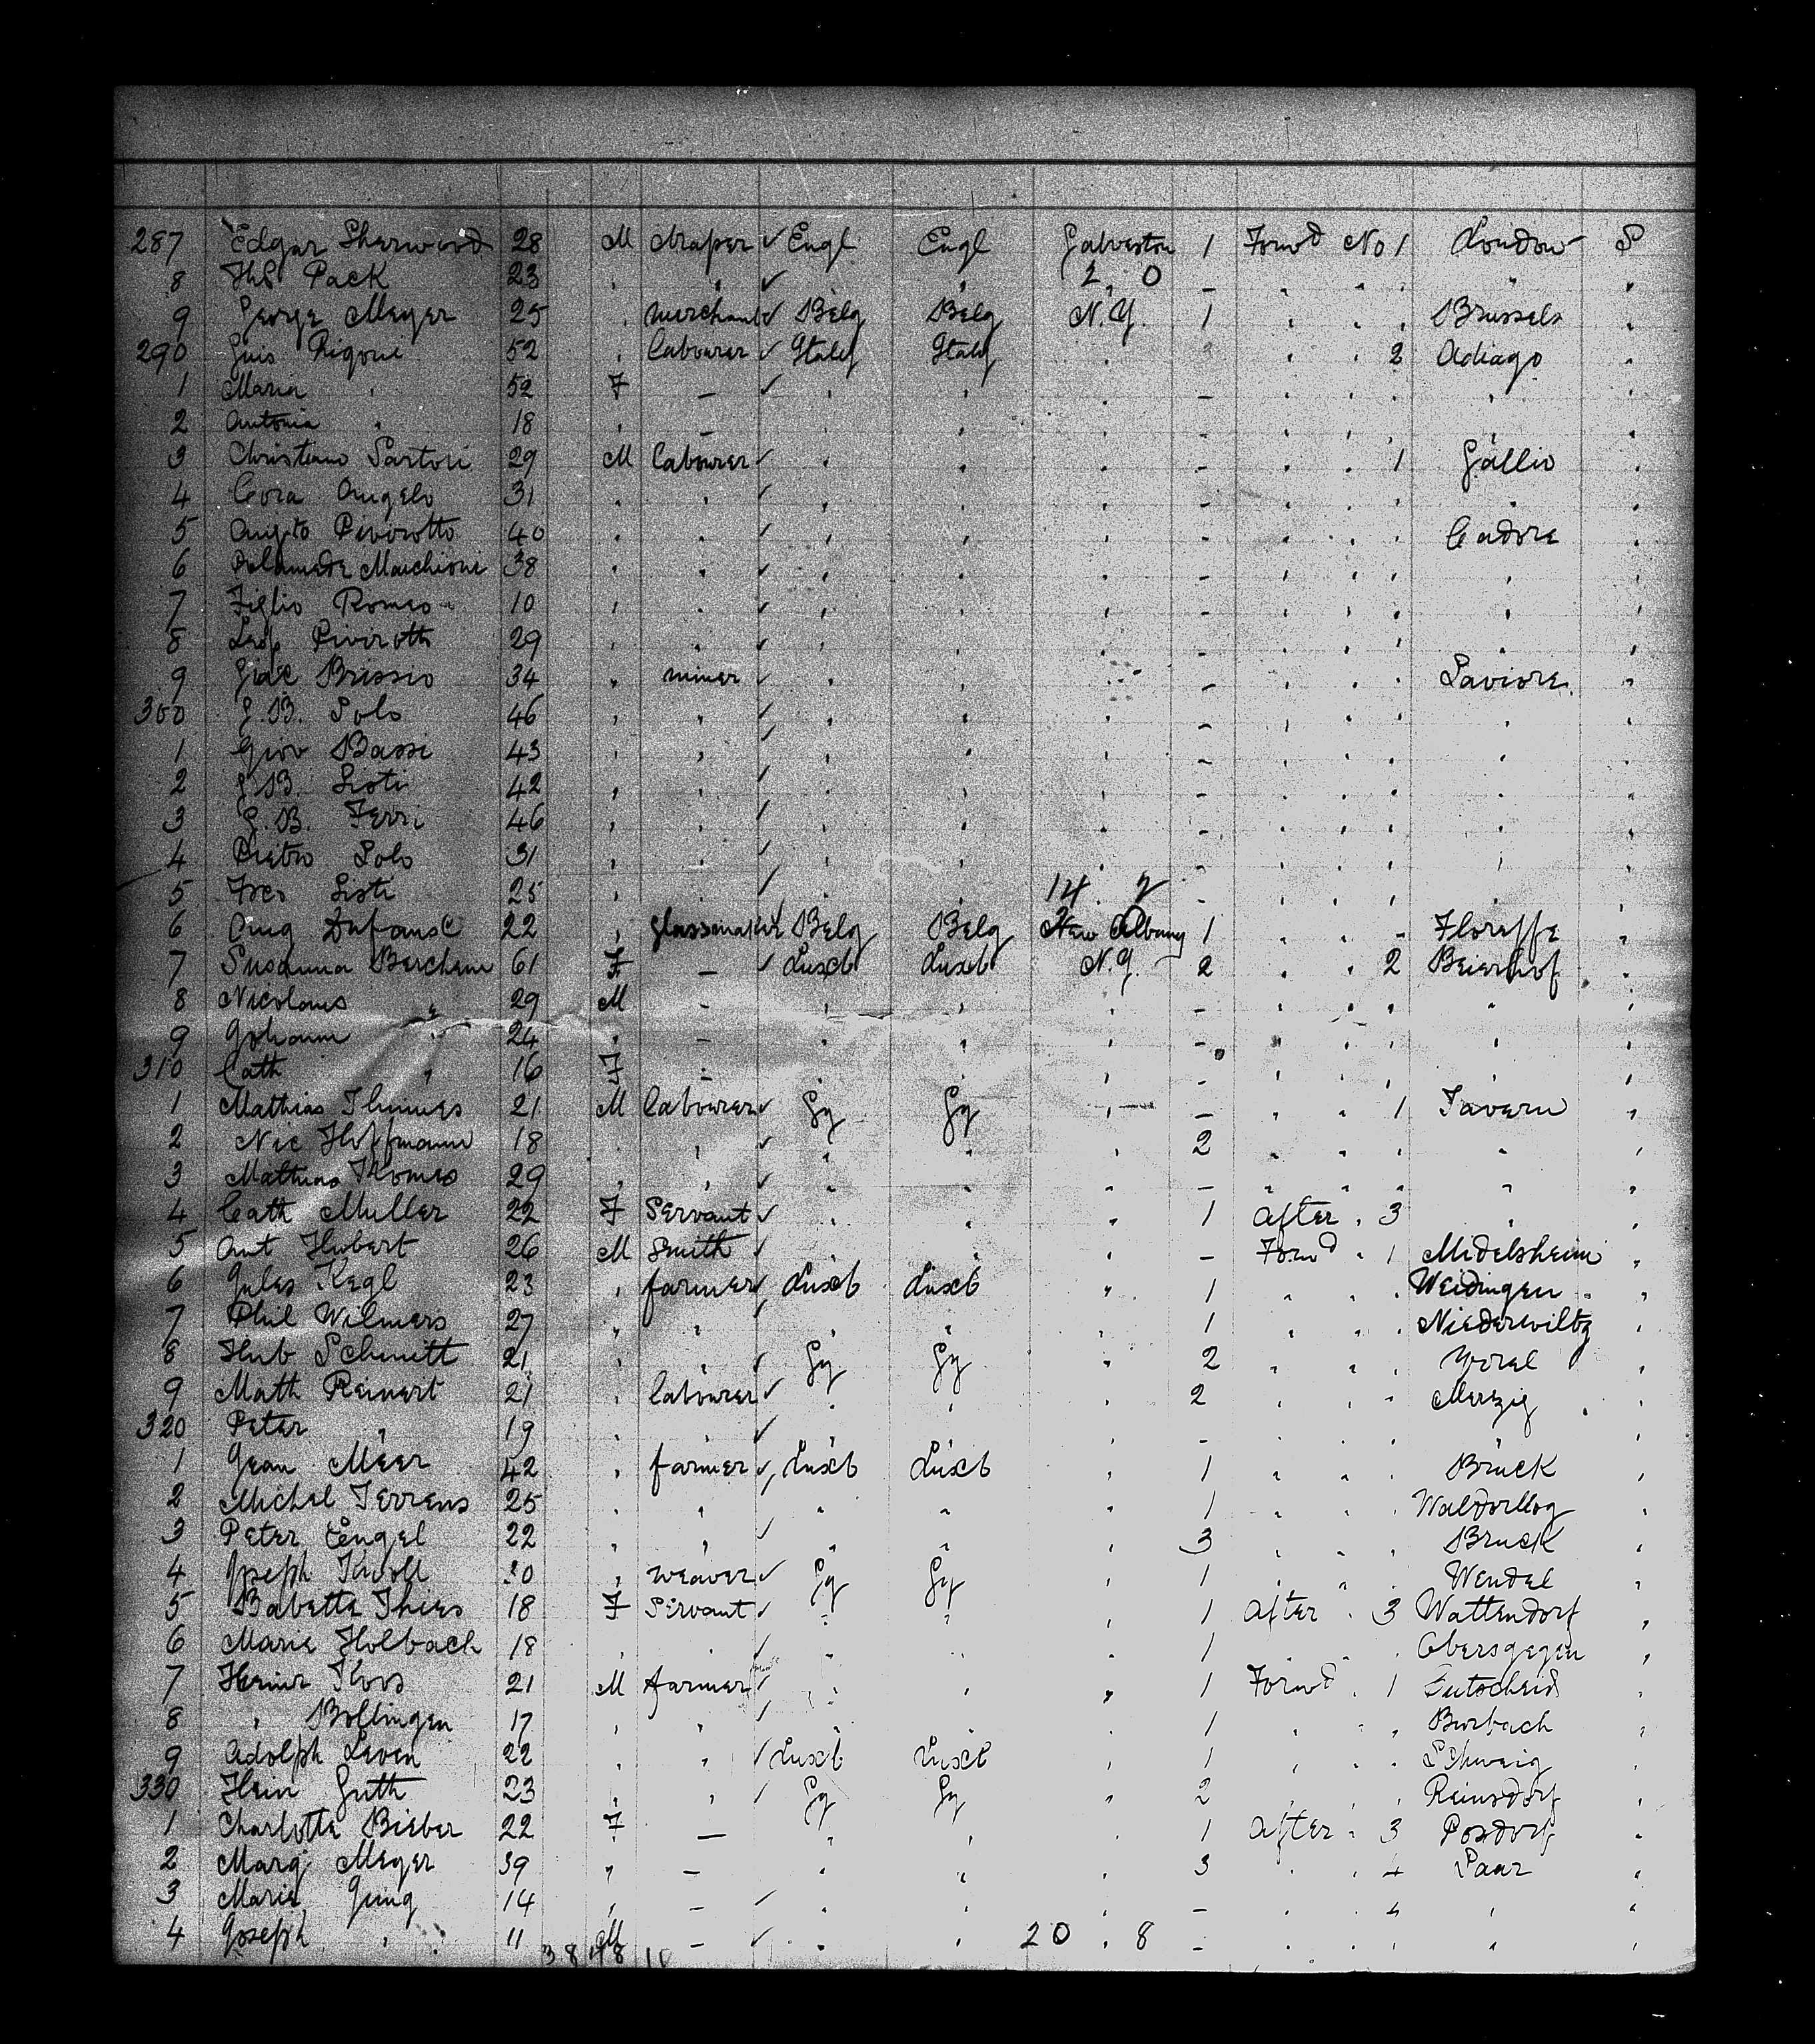 287 Edgar Sherwood 28 M draper ✓ Engl Engl Galveston 1 Forwd No 1 London S
8 Ths Pack 23 " " ✓ " " 2 . 0 - " " " " "
9 George Meyer 25 " merchant ✓ Belg Belg N.Y. 1 " " " Brussels "
290 Rigoni 52 " labourer ✓ Italy Italy " " " 2 Adiago "
1 Maria " 52 F - ✓ " " " - " " " " "
2 Antonia " 18 " - " " " - " " " " "
3 Christiano Sartori 29 M labourer ✓ " " " - " " 1 Gallio "
4 Cora Angelo 31 " " ✓ " " " - " " " " "
5 Pivirotto 40 " " ✓ " " " - " " " Cadore "
6 Palamede Marchioni 38 " " ✓ " " " - " " " " "
7 Figlio Romeo 10 " " ✓ " " " - " " " " "
8 Pivirotti 29 " " ✓ " " " - " " " " "
9 Giac Brissio 34 " miner ✓ " " " - " " " Saviore "
300 G.B. Polo 46 " " ✓ " " " - " " " " "
1 Giov Bassi 43 " " ✓ " " " - " " " " "
2 G.B. Sisti 42 " " ✓ " " " - " " " " "
3 G.B. Ferri 46 " " ✓ " " " - " " " " "
4 Pietro Polo 31 " " ✓ " " " - " " " " "
5 Fres Sisti 25 " " ✓ " " 14 . 2 - " " " " "
6 Aug Dufansé 22 " glassmaker Belg Belg New Albany 1 " " - Floreffe "
7 Susanna Berchem 61 F - ✓ Luxb Luxb N.Y. 2 " " 2 Beierhof "
8 Nicolaus " 29 M - " " " - " " " " "
9 Johann " 24 " - " " " - " " " " "
310 Cath " 16 F - " " " - " " " " "
1 Mathias Thinnes 21 M labourer ✓ Gy Gy " - " " 1 Tavern "
2 Nic Hoffmann 18 " " ✓ " " " 2 " " " " "
3 Mathias Thomes 29 " " ✓ " " " - " " " " "
4 Cath Muller 22 F Servant ✓ " " " 1 After " 3 " "
5 Ant Hubert 26 M Smith ✓ " " " - Forwd " 1 Medelsheim "
6 Jules Kegl 23 " farmer ✓ Luxb Luxb " 1 " " " Weidingen "
7 Phil Wilmers 27 " " ✓ " " " 1 " " " Niederwiltz "
8 Hub Schmitt 21 " " ✓ Gy Gy " 2 " " " "
9 Math Reinert 21 " labourer ✓ " " " 2 " " Merzig "
320 Peter " 19 " " ✓ " " " - " " " " "
1 Jean Meer 42 " farmer ✓ Luxb Luxb " 1 " " Bruck "
2 Michel Terrens 25 " " " " " 1 " " "
3 Peter Engel 22 " " ✓ " " " 3 " " " Bruck "
4 Joseph Knoll 30 " weaver ✓ Gy Gy " 1 " " Wendel "
5 Babette Thies 18 F Servant ✓ " " " 1 After " 3 Wattendorf "
6 Marie Holbach 18 " " ✓ " " " 1 " " " Obersgegen "
7 Heinr Koos 21 M farmer ✓ " " " 1 Forwd " 1 "
8 " Bollingen 17 " " ✓ " " " 1 " " " Burbach "
9 Adolph Leven 22 " " ✓ Luxb Luxb " 1 " " " "
330 Hein Guth 23 " " ✓ Gy Gy " 2 " " Reinsdorf "
1 Charlotte Bieber 22 F - " " " 1 After " 3 Posdorf "
2 Marg Meyer 39 " - " " " 3 " " 4 Saar "
3 Marie Jung 14 " - ✓ " " - " 4 " "
4 Joseph " 11 M - ✓ " " 20 . 8 - " " " " "